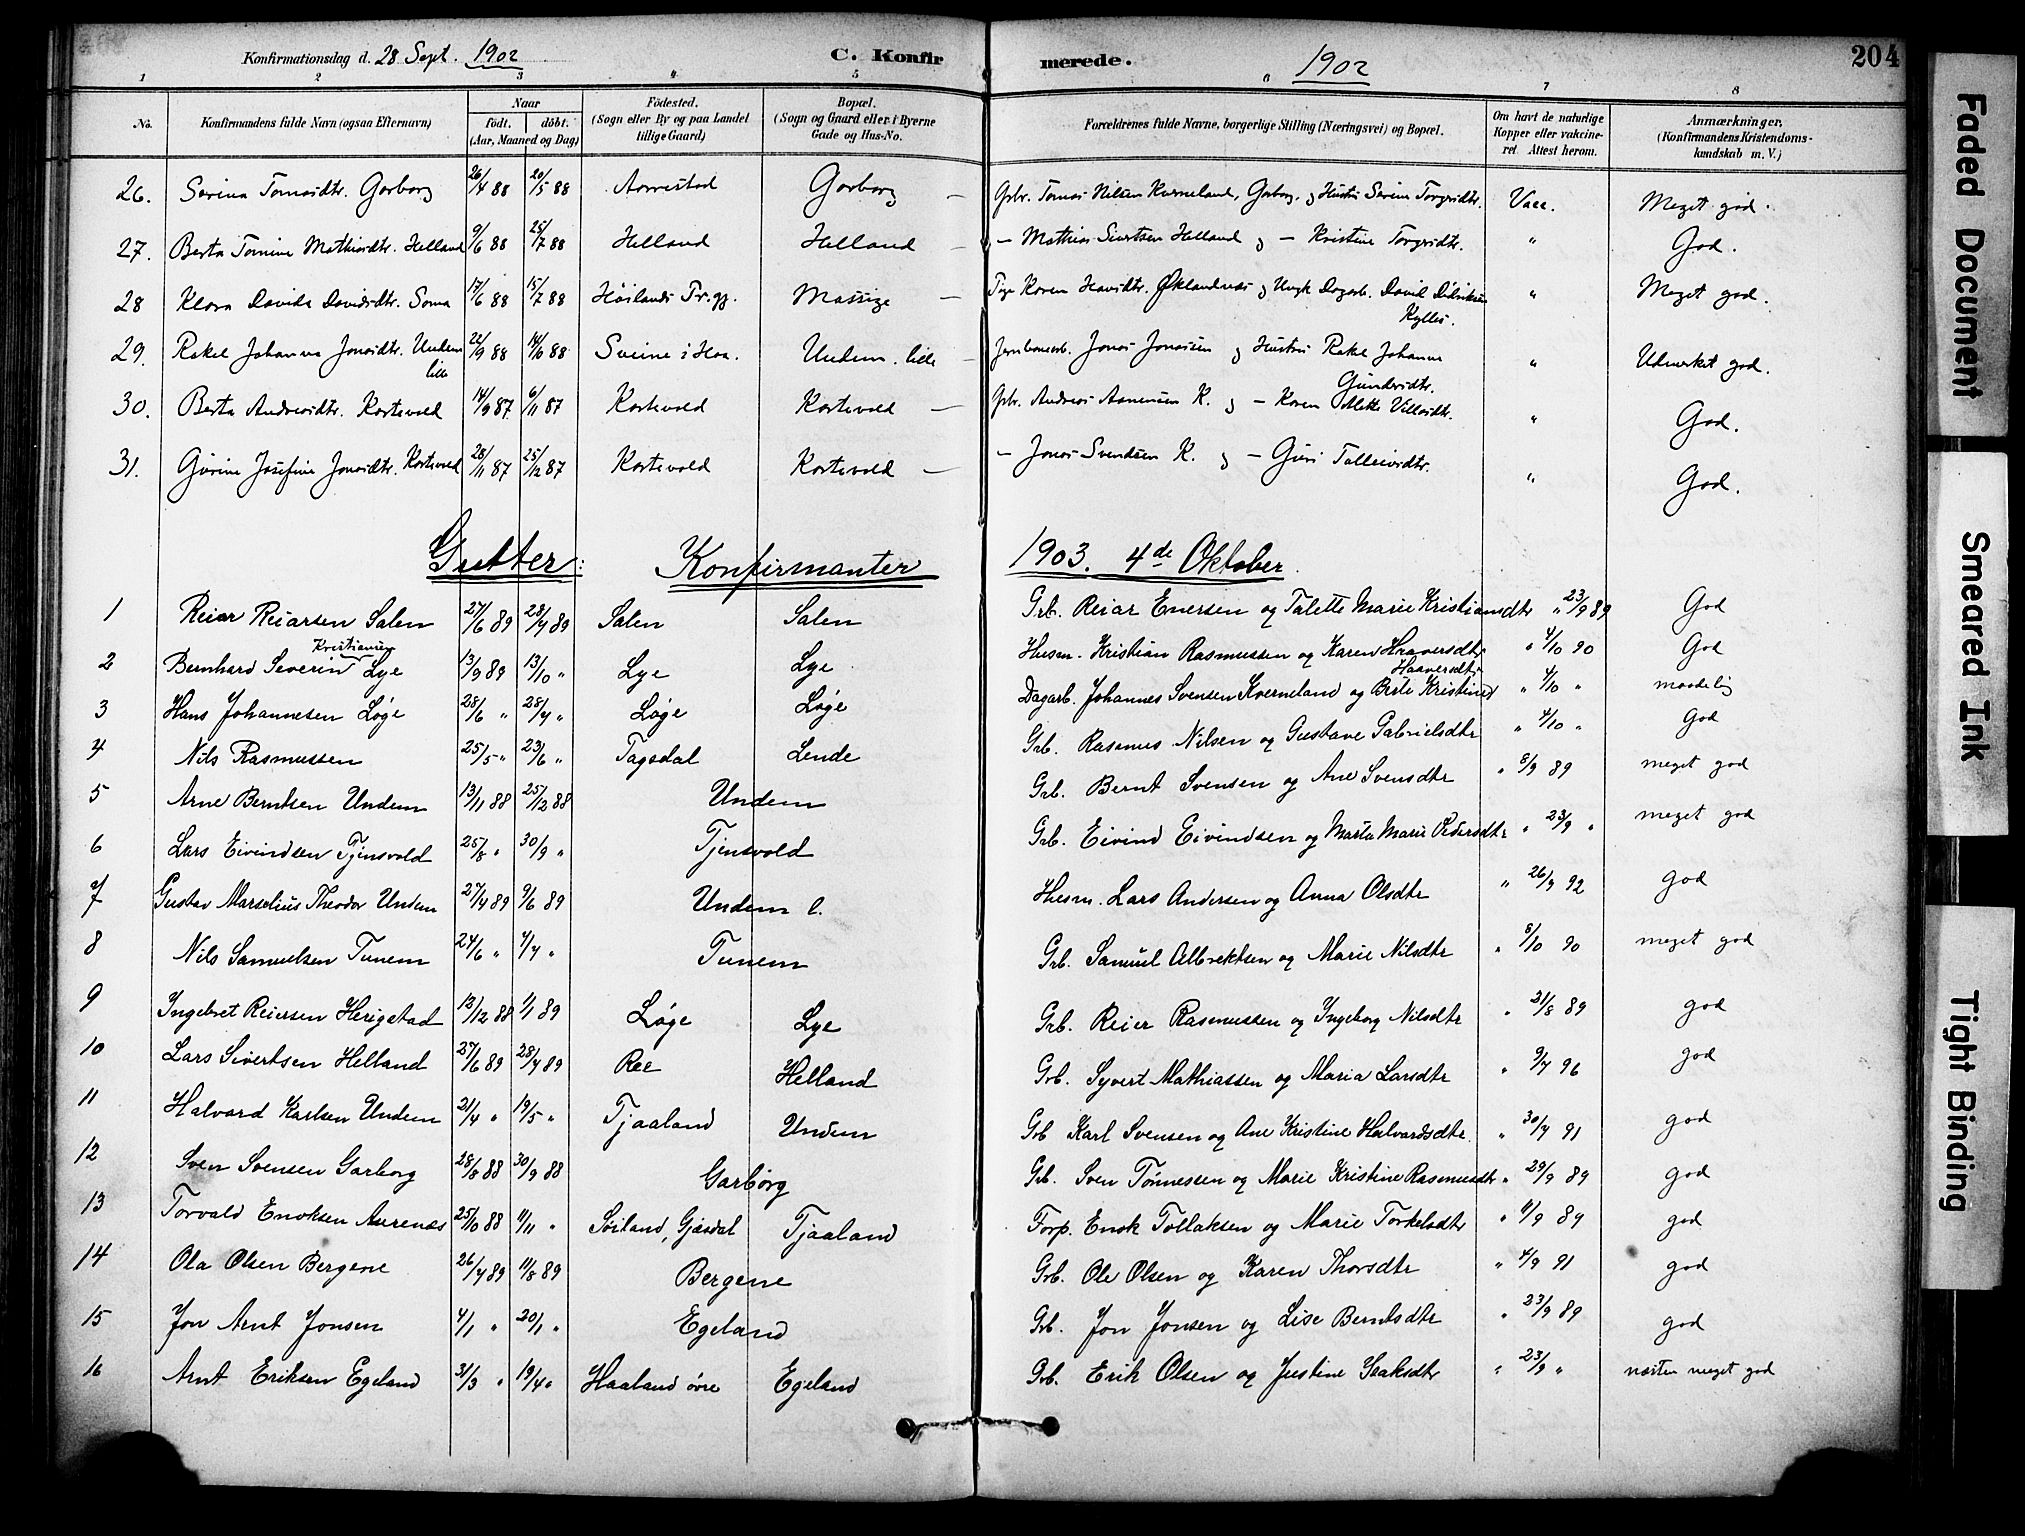 Konfirmationsdag d. 28 Sept. 1902 C. Konfir merede. 1902 204
1 2 3 4 5 6 7 8
No. Konfirmandens fulde Navn (ogsaa Efternavn) Naar født. døbt. (Aar, Maaned og Dag) Fødested. (Sogn eller By og paa Landet tillige Gaard) Bopæl. (Sogn og Gaard eller i Byerne Gade og Hus-No. Forældrenes fulde Navne, borgerlige Stilling (Næringsvei) og Bopæl. Om havt de naturlige Kopper eller vakcineret. Attest herom. Anmærkninger. (Konfirmandens Kristendomskundskab m. V.)
26. Serina Tomasdtr. Garborg 26/4 88 20/5 88 Aarrestad Garborg — Grbr. Tomas Nilsen Kverneland, Garborg, og Hustru Serine Torgersdtr. Vacc. Meget god.
27. Berta Tomine Mathiasdtr. Helland 9/6 88 25/7 88 Helland Helland — Mathias Sivertsen Helland og — Kristine " God.
28 Klara Davida Davidsdtr. Soma 17/6 88 15/7 88 Høilands Pr.gj. Massige — Pige Karen Øklandnæs og Ungk. Dagarb. David Didriksen Kylles. " Meget god.
29. Rakel Johanna Jonasdtr. Undem lille 22/9 88 14/6 88 Sveine i Haa. Undem lille — Jernbanearb. Jonas Jonassen og Hustru Rakel Johanna Gundersdtr. " Udmerket god.
30. Berta Andreasdtr. Kartevold 14/9 87 6/11 87 Kartevold Kartevold — Grbr. Andreas Aanensen K. og — Karen Mette " God.
31. Gurine Josefine Jonasdtr. Kartevold 28/11 87 25/12 87 Kartevold Kartevold — — Jonas Svendsen K. og — Guri Talleivsdtr. " God.
Gutter: Konfirmanter 1903. 4de Oktober.
1 Reiar Reiarsen Salen 27/6 89 28/7 89 Salen Salen Grb. Reiar Enersen og Talette Marie Kristiansdtr " 23/9 89 God
2 Bernhard Severin Kristiansen Lye 13/9 89 13/10 " Lye Lye Husm. Kristian Rasmussen og Karen Haaversdtr " 4/10 90 God
3 Hans Johannesen Løge 28/6 " 28/7 " Løge Løge Dagarb. Johannes Svensen Kverneland og Birte Kristine Haaversdtr " 4/10 " maadelig
4 Nils Rasmussen 25/5 " 23/6 " Tagsdal Lende Grb. Rasmus Nilsen og Gustave Gabrielsdtr " 4/10 " God
5 Arne Berntsen Undem 13/11 88 25/12 88 Undem Grb. Bernt Svensen og Ane Svensdtr " 5/9 89 meget god
6 Lars Eivindsen Tjensvold 25/8 " 30/9 " Tjensvold Grb. Eivind Eivindsen og Marta Marie Pedersdtr " 23/9 " meget god
7 Gustav Marselius Theodor Undem 27/4 89 9/6 89 Undem l. Husm. Lars Andersen og Anna Olsdtr " 26/9 92 god
8 Nils Samuelsen Tunem 24/6 " 7/7 " Tunem Grb. Samuel Albrektsen og Marie Nilsdtr " 5/10 90 meget god
9 Ingebret Reiersen Herigstad 13/12 88 1/1 89 Løge Lye Grb. Reier Rasmussen og Ingeborg Nilsdtr " 31/8 89 god
10 Lars Sivertsen Helland 27/6 89 28/7 89 Ree Helland Grb. Syvert Mathiassen og Maria Larsdtr " 9/7 96 god
11 Halvard Karlsen Undem 21/4 " 19/5 " Tjaaland Undem Grb Karl Svensen og Ane Kristine Halvardsdtr. " 30/7 91 god
12 Sven Svensen Garborg 28/8 88 30/9 88 Garborg Grb. Sven Tønnessen og Marie Kristine Rasmusdtr " 29/9 89 god
13 Torvald Enoksen Aurenæs 25/10 88 11/11 " Søiland, Gjæsdal Tjaaland Forp. Enok Tollaksen og Marie Torkelsdtr " 4/9 89 god
14 Ola Olsen Bergene 26/7 89 11/8 89 Bergene Grb. Ole Olsen og Karen Thorsdtr " 4/9 91 god
15 Jon Arnt Jonsen 4/1 " 20/1 " Egeland Grb. Jon Jonsen og Lise Berntsdtr " 23/9 89 god
16 Arnt Eriksen Egeland 31/3 " 19/4 " Haaland øvre Egeland Grb. Erik Olsen og Justine Isaksdtr " 23/9 " næsten meget god
Faded Document
Smeared Ink
Tight Binding